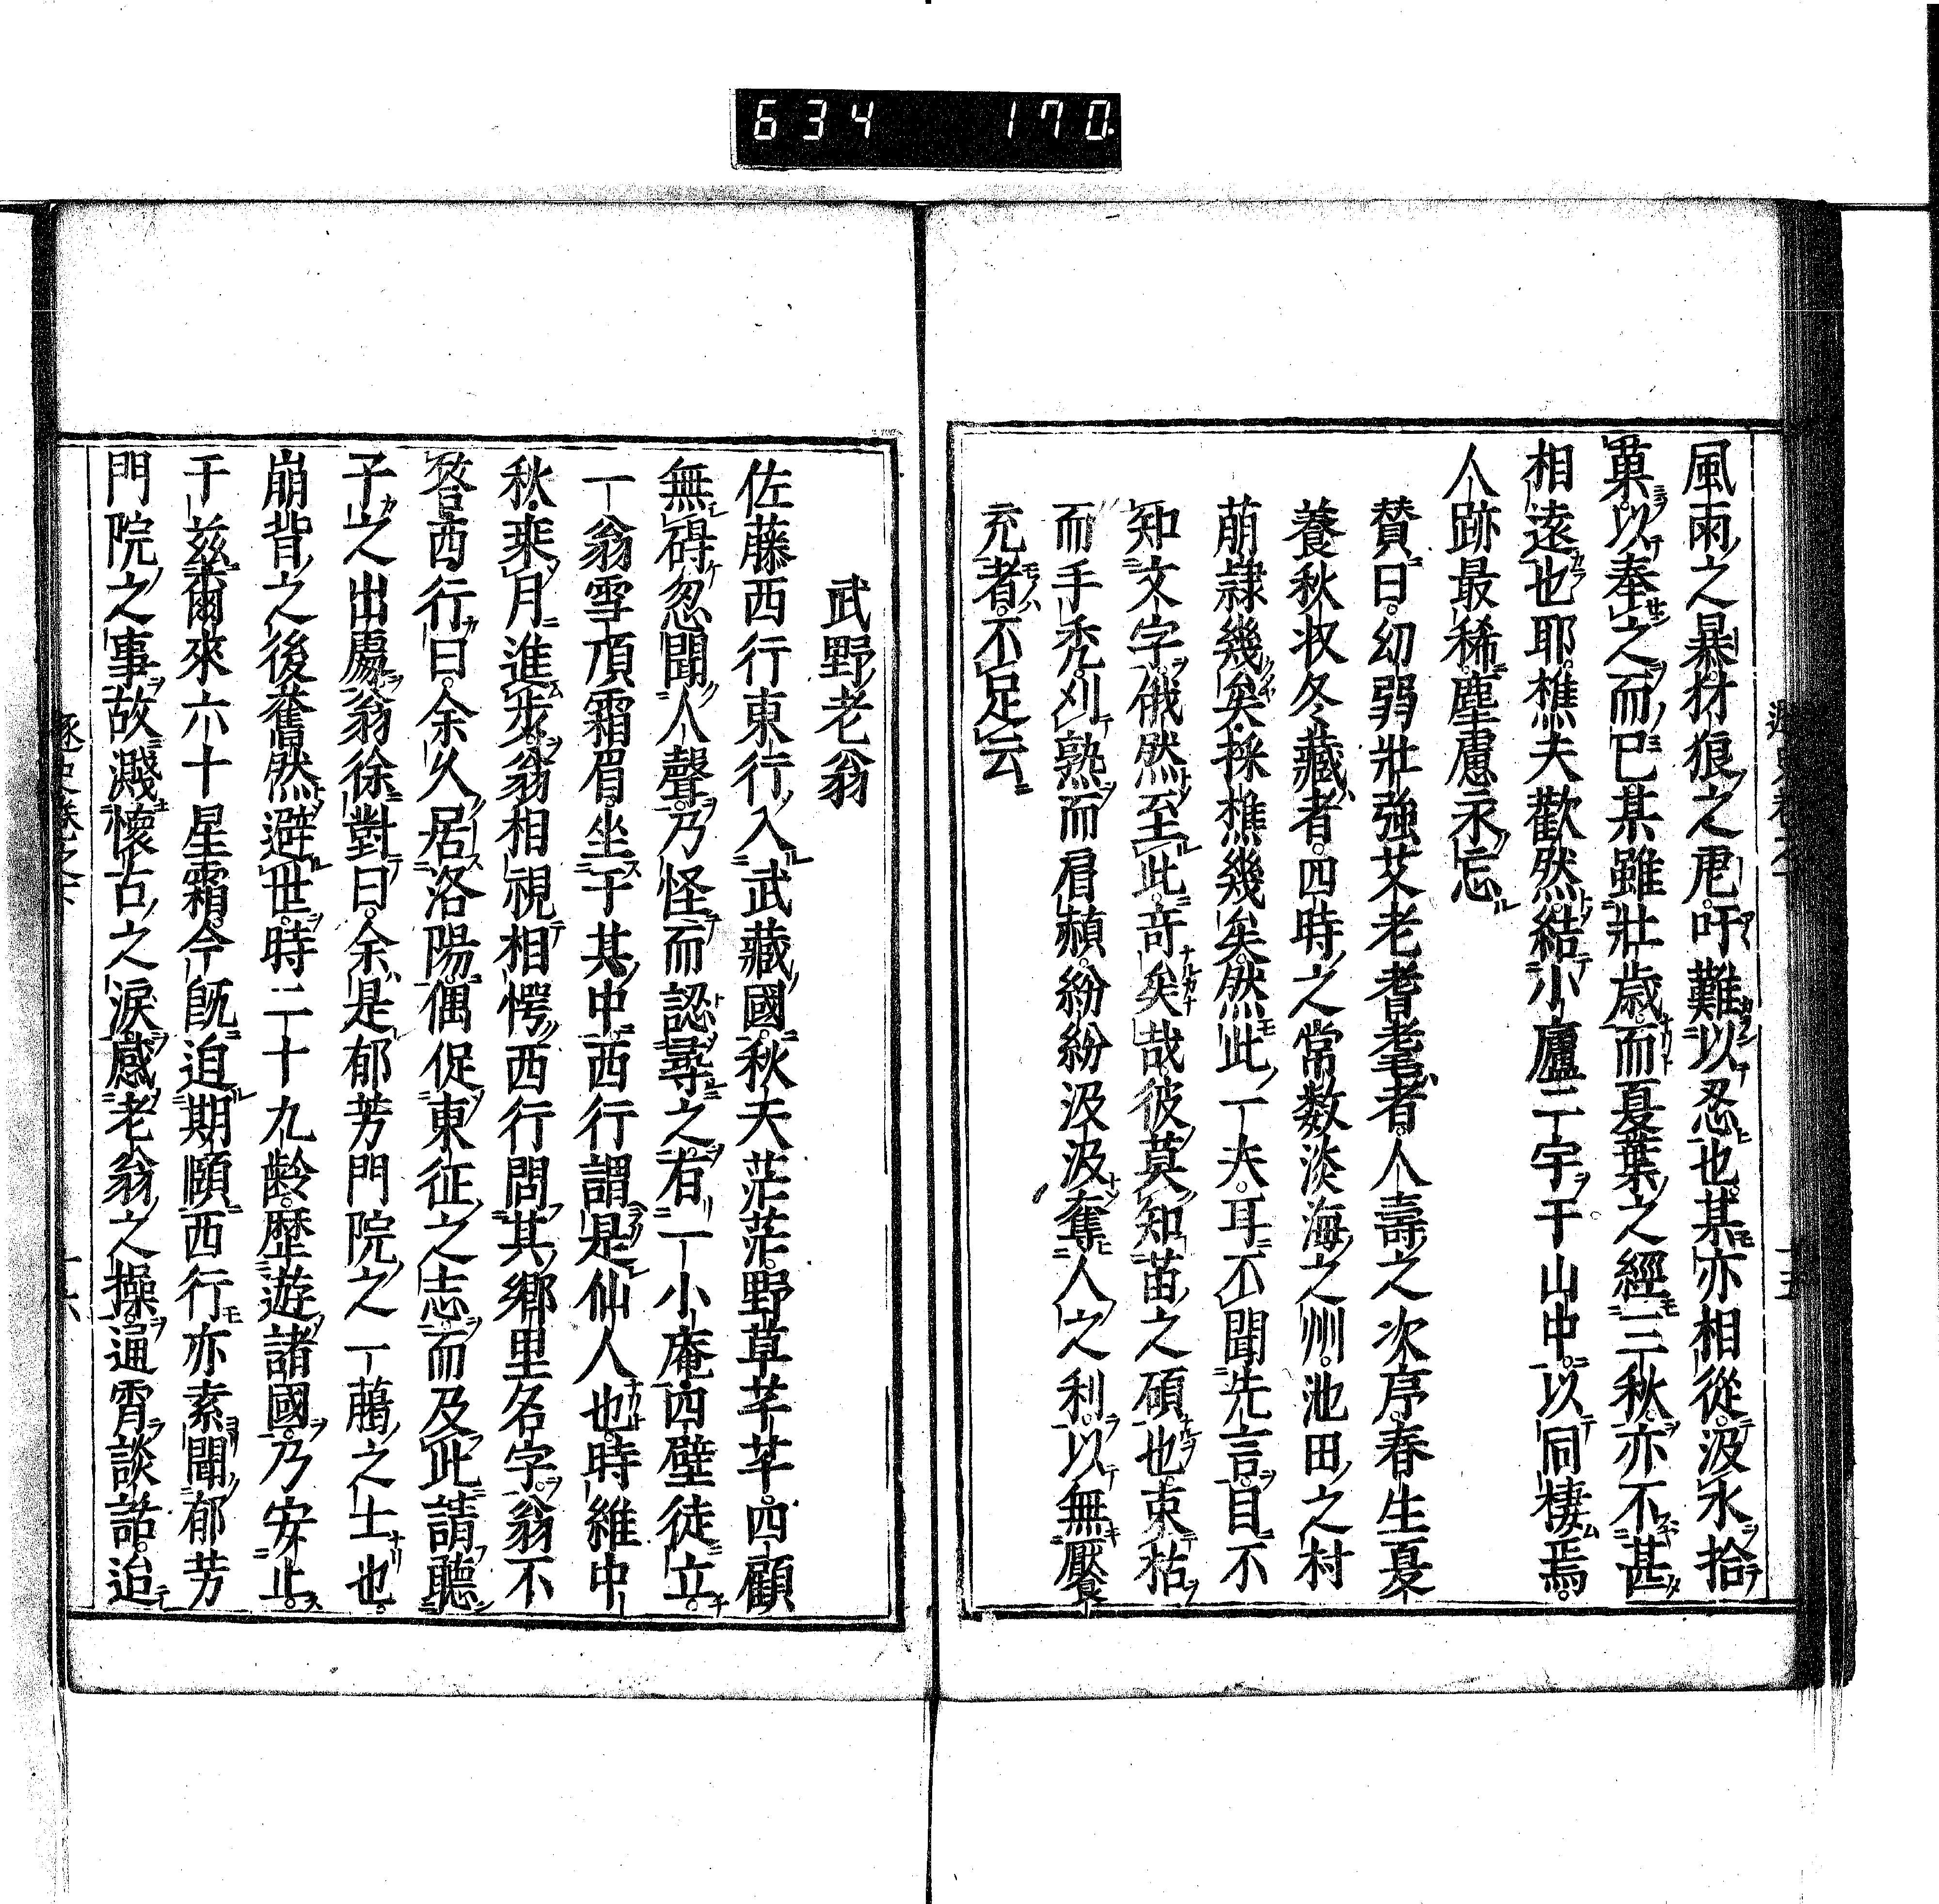 634 170.
風雨之暴豺狼之虎吁難以忍也某亦相從汲水拾
菓以奉之而已某雖壯歳而憂葉之經三秋亦不甚
相遠也耶樵夫歡然結小廬二宇于山中以同棲焉
人跡最稀塵慮永忘
賛曰幼弱壯強艾老耆耄者人壽之次序春生夏
養秋収冬藏者四時之常数淡海之州池田之村
萠隷幾矣採樵幾矣然此一夫耳不聞先言目不
知文字俄然至此奇矣哉彼莫知苗之碩也束枯
而手禿刈熟而肩赬紛紛汲汲奪人之利以無饜
充者不足云
武野老翁
佐藤西行東行入武藏國秋天茫茫野草芊芊四顧
無碍忽聞人聲乃怪而認尋之有一小庵四壁徒立
一翁雪頂霜眉坐于其中西行謂是仙人也時維中
秋乘月進步翁相視相愕西行問其鄉里名字翁不
答西行曰余久居洛陽偶促東征之志而及此請聽
子之出處翁徐對曰余是郁芳門院之一﨟之士也
崩背之後奮然避世時二十九齡歷遊諸國乃安止
于茲爾來六十星霜今既迫期頤西行亦素聞郁芳
門院之事故濺懷古之淚感老翁之操通宵談話迨